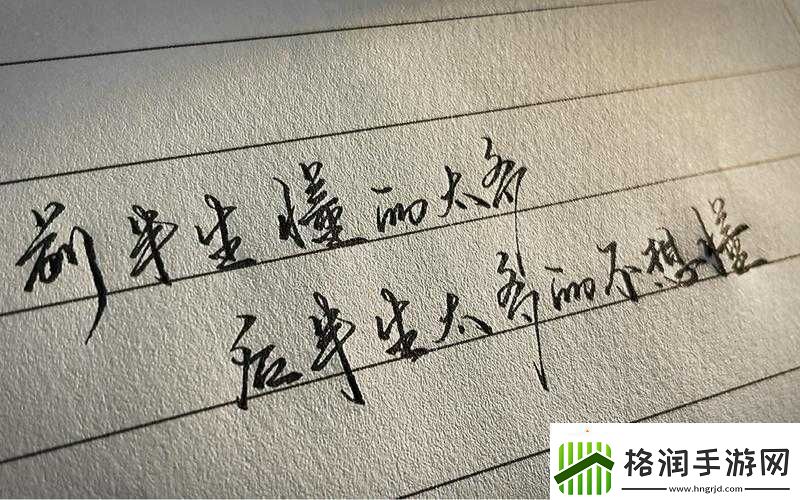 前半生懂的太多
后半生太多的不想懂
格润手游网
www.hngrjd.com